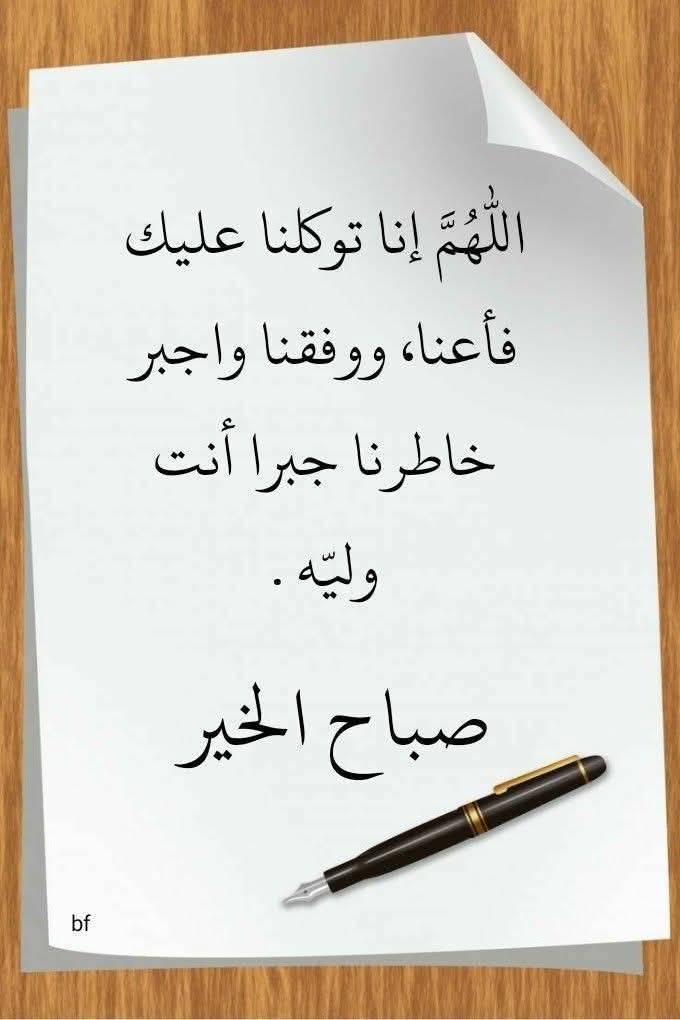 اللّٰهُمَّ إنا توكلنا عليك
فأعنا، ووفقنا واجبر
خاطرنا جبرا أنت
وليّه .
صباح الخير
bf